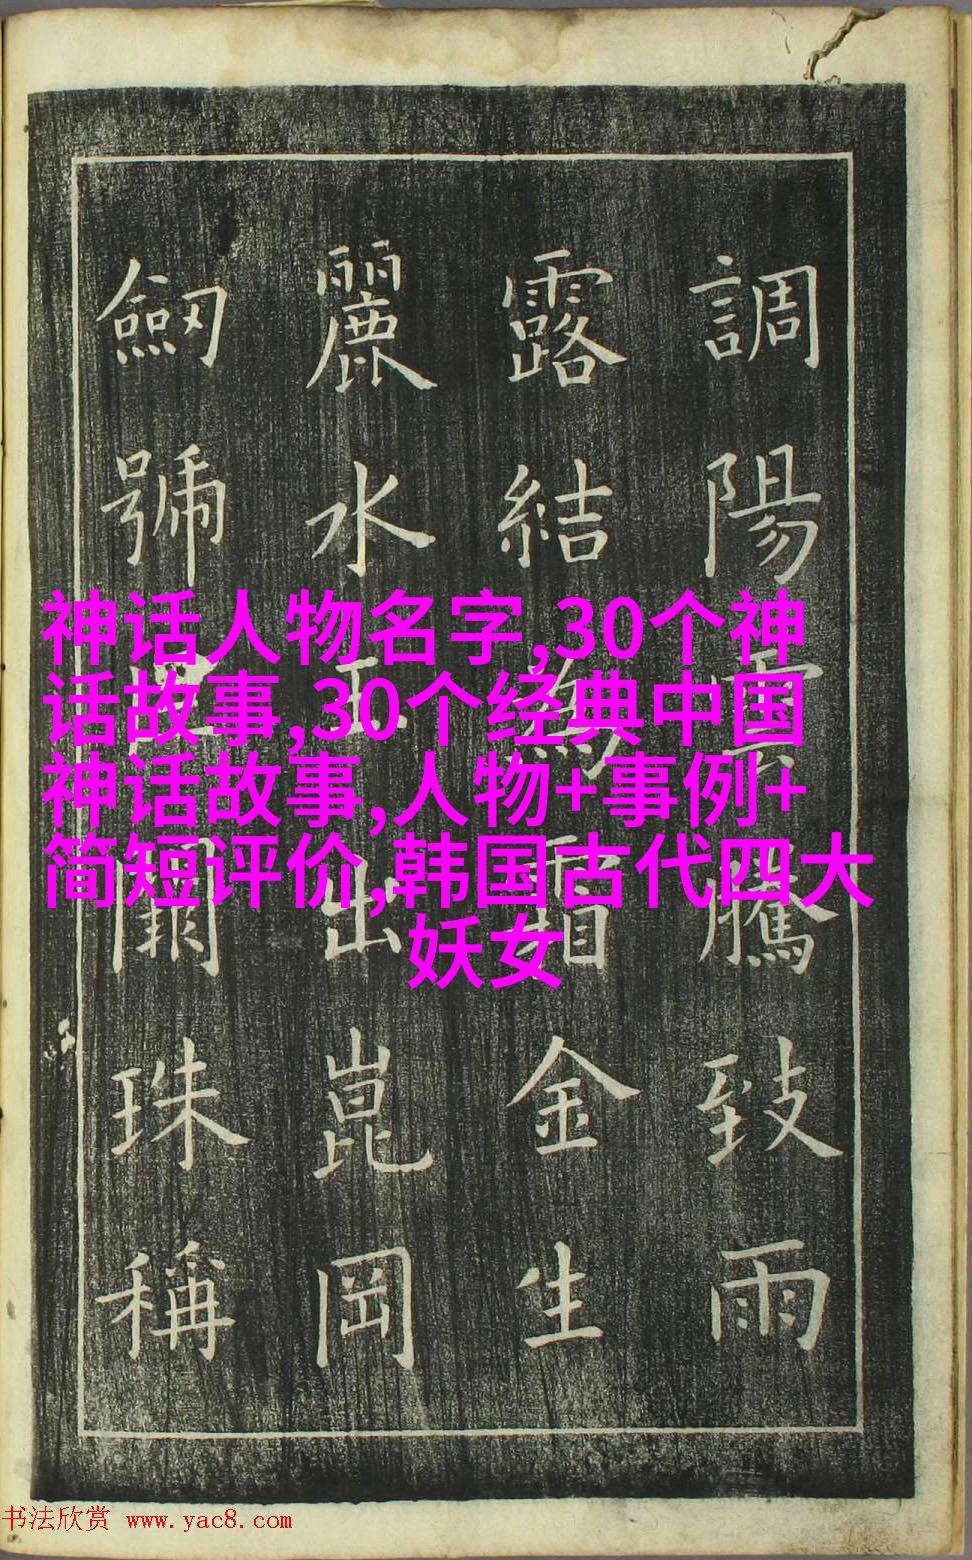 調陽雲騰致雨
露結為霜金生
麗水玉出崑岡
劒號巨闕珠稱
神话人物名字,30个神
话故事,30个经典中国
神话故事,人物+事例+
简短评价,韩国古代四大
妖女
书法欣赏 www.yac8.com